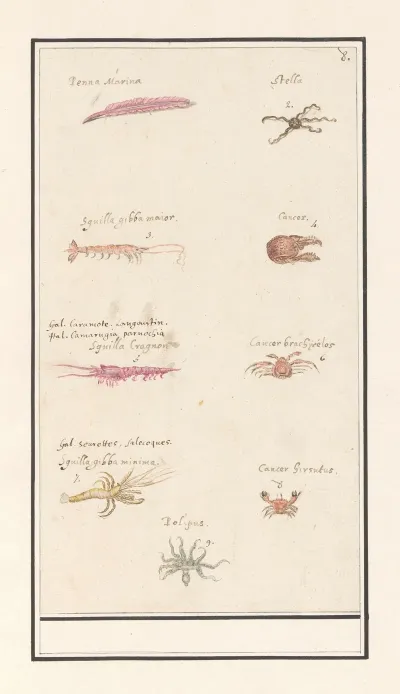 8.
Penna Marina
Stella
2.
Squilla gibba maior.
3.
Cancer.
4.
Gal. Caramote. Langoustin.
Ital. Camarugia parnochia
Squilla Cragnon
5
Cancer brachÿelos
6
Gal. Seurettes. Salecoques.
Squilla gibba minima.
7.
Cancer hirsutus.
8
Polipus.
9.